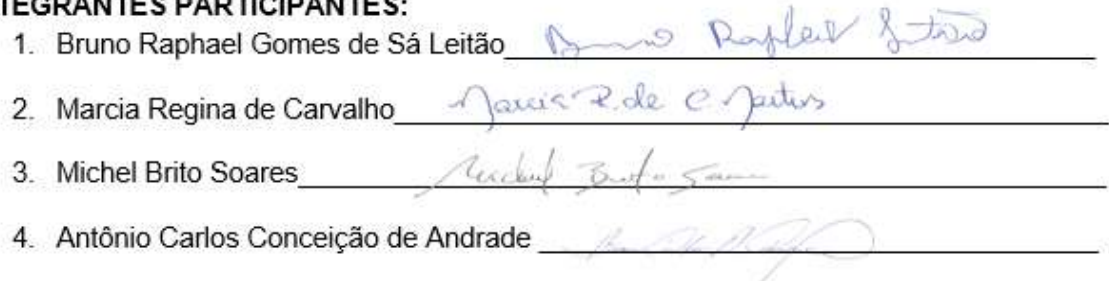 TEGRANTES PARTICIPANTES:
1. Bruno Raphael Gomes de Sá Leitão Bruno Raphael Leitão
2. Marcia Regina de Carvalho Marcia R. de C. Martins
3. Michel Brito Soares Michel Brito Soares
4. Antônio Carlos Conceição de Andrade